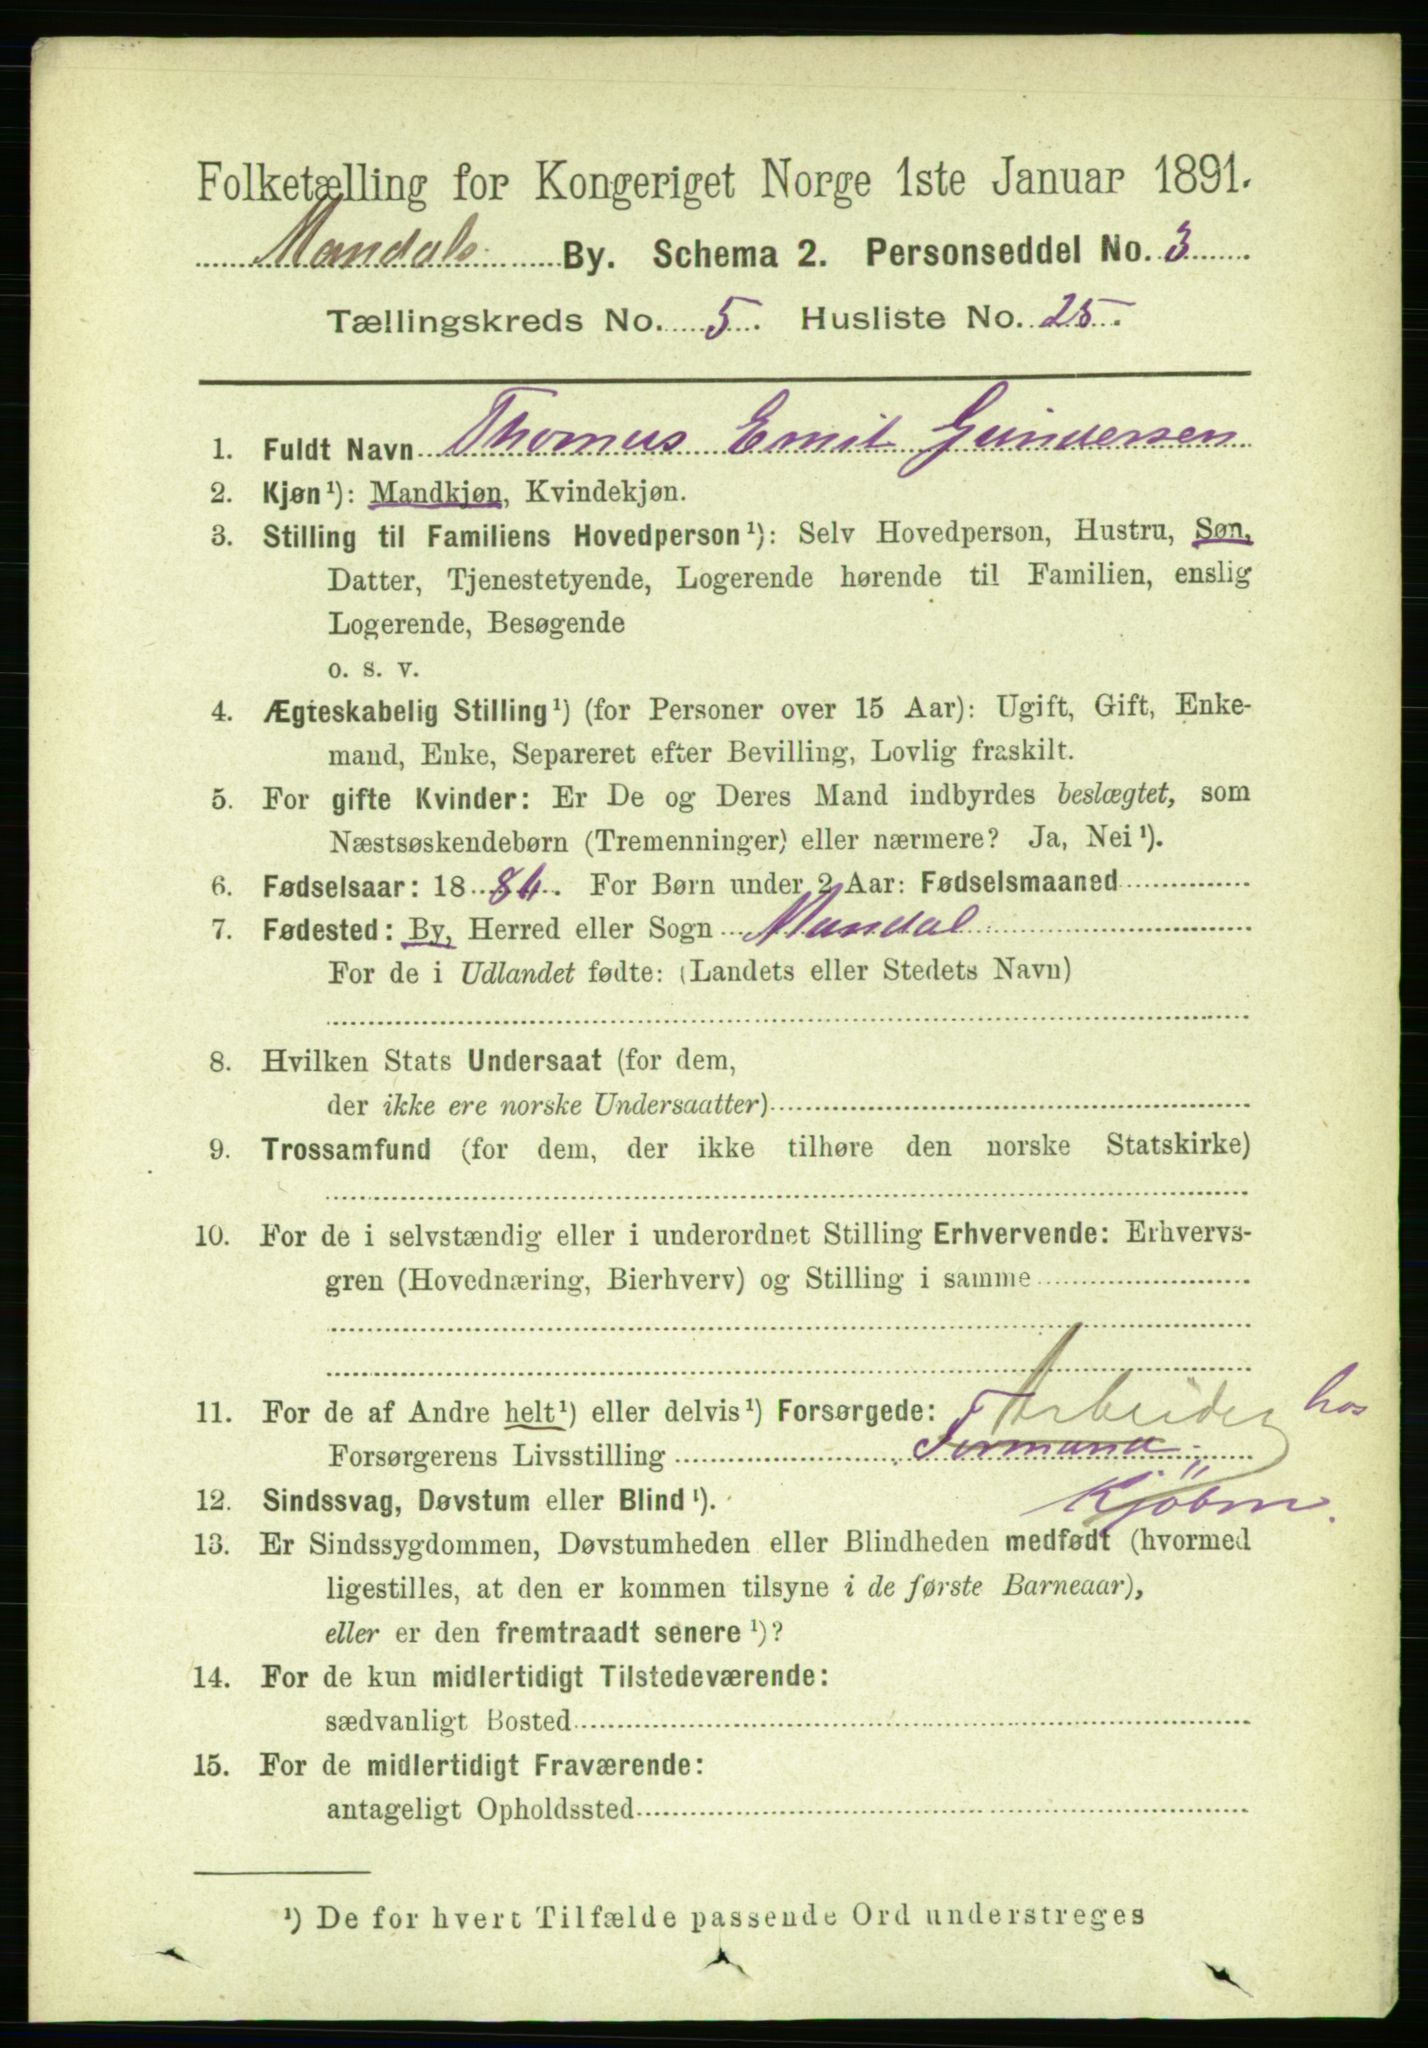 Folketælling for Kongeriget Norge 1ste Januar 1891.
Mandals By. Schema 2. Personseddel No. 3
Tællingskreds No. 5. Husliste No. 25.
1. Fuldt Navn Thomas Emil Gundersen
2. Kjøn¹): Mandkjøn, Kvindekjøn.
3. Stilling til Familiens Hovedperson¹): Selv Hovedperson, Hustru, Søn,
Datter, Tjenestetyende, Logerende hørende til Familien, enslig
Logerende, Besøgende
o. s. v.
4. Ægteskabelig Stilling¹) (for Personer over 15 Aar): Ugift, Gift, Enke-
mand, Enke, Separeret efter Bevilling, Lovlig fraskilt.
5. For gifte Kvinder: Er De og Deres Mand indbyrdes beslægtet, som
Næstsøskendebørn (Tremenninger) eller nærmere? Ja, Nei¹).
6. Fødselsaar: 18 84. For Børn under 2 Aar: Fødselsmaaned
7. Fødested: By, Herred eller Sogn Mandal
For de i Udlandet fødte: (Landets eller Stedets Navn)
8. Hvilken Stats Undersaat (for dem,
der ikke ere norske Undersaatter)
9. Trossamfund (for dem, der ikke tilhøre den norske Statskirke)
10. For de i selvstændig eller i underordnet Stilling Erhvervende: Erhvervs-
gren (Hovednæring, Bierhverv) og Stilling i samme
11. For de af Andre helt¹) eller delvis¹) Forsørgede: Arbeider hos
Forsørgerens Livsstilling Formand
12. Sindssvag, Døvstum eller Blind¹). Kjöbm.
13. Er Sindssygdommen, Døvstumheden eller Blindheden medfødt (hvormed
ligestilles, at den er kommen tilsyne i de første Barneaar),
eller er den fremtraadt senere¹)?
14. For de kun midlertidigt Tilstedeværende:
sædvanligt Bosted
15. For de midlertidigt Fraværende:
antageligt Opholdssted
¹) De for hvert Tilfælde passende Ord understreges